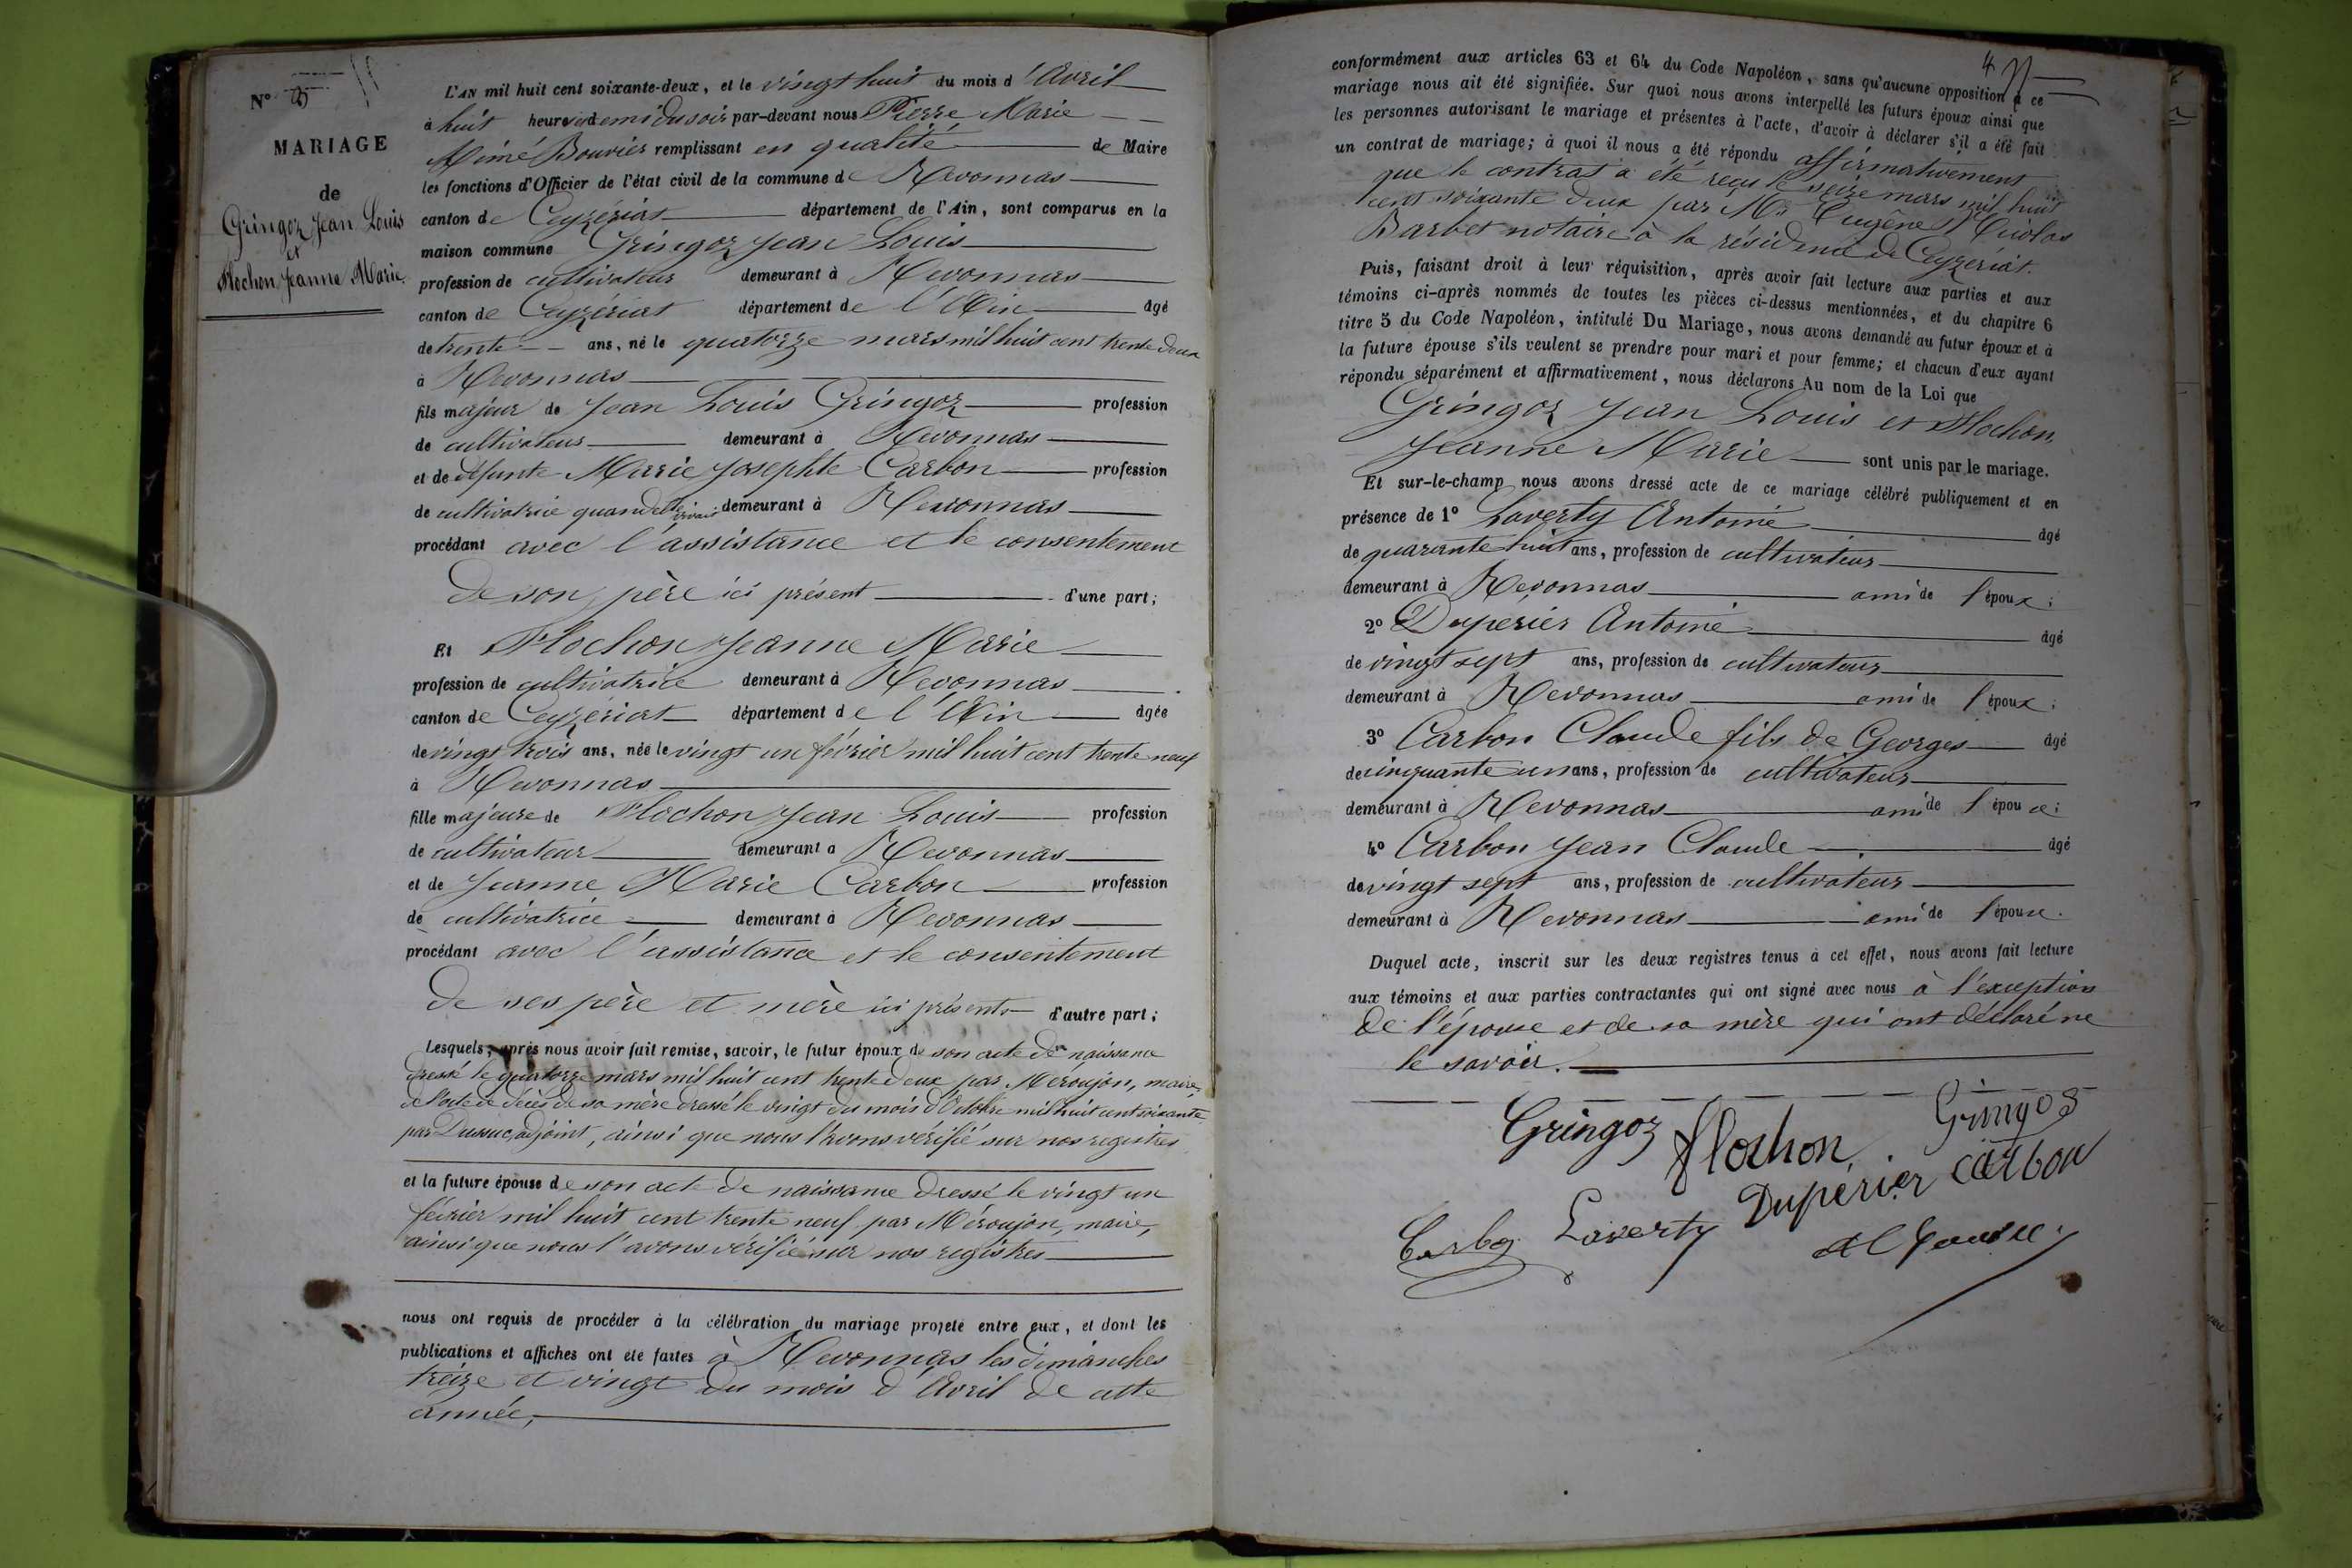 N°
MARIAGE
de
Gringoz Jean Louis
et
Flochon Jeanne Marie
L'AN mil huit cent soixante-deux, et le vingt huit du mois d'Avril
à huit heures et demi du soir par-devant nous Pierre Marie
Aimé Bouvier remplissant en qualité de Maire
les fonctions d'Officier de l'état civil de la commune de Revonnas
canton de Ceyzériat département de l'Ain, sont comparus en la
maison commune Gringoz Jean Louis
profession de cultivateur demeurant à Revonnas
canton de Ceyzériat département de l'Ain âgé
de trente ans, né le quatorze mars mil huit cent trente deux
à Revonnas
fils majeur de Jean Louis Gringoz profession
de cultivateur demeurant à Revonnas
et de défunte Marie Josephte Carbon profession
de cultivatrice quand elle vivait demeurant à Revonnas
procédant avec l'assistance et le consentement
de son père ici présent d'une part;
Et Flochon Jeanne Marie
profession de cultivatrice demeurant à Revonnas
canton de Ceyzeriat département de l'Ain âgée
de vingt trois ans, née le vingt un février mil huit cent trente neuf
à Revonnas
fille majeure de Flochon Jean Louis profession
de cultivateur demeurant à Revonnas
et de Jeanne Marie Carbon profession
de cultivatrice demeurant à Revonnas
procédant avec l'assistance et le consentement
de ses père et mère ici présents d'autre part;
Lesquels, après nous avoir fait remise, savoir, le futur époux de son acte de naissance
dressé le quatorze mars mil huit cent trente deux par Méroujon, maire,
de l'acte de décès de sa mère dressé le vingt du mois d'Octobre mil huit cent soixante
par Dussuc, adjoint, ainsi que nous l'avons vérifié sur nos registres
et la future épouse de son acte de naissance dressé le vingt un
février mil huit cent trente neuf par Méroujon, maire,
ainsi que nous l'avons vérifié sur nos registres
nous ont requis de procéder à la célébration du mariage projeté entre eux, et dont les
publications et affiches ont été faites à Revonnas les dimanches
treize et vingt du mois d'Avril de cette
année,
4
conformément aux articles 63 et 64 du Code Napoléon, sans qu'aucune opposition à ce
mariage nous ait été signifiée. Sur quoi nous avons interpellé les futurs époux ainsi que
les personnes autorisant le mariage et présentes à l'acte, d'avoir à déclarer s'il a été fait
un contrat de mariage; à quoi il nous a été répondu affirmativement
que le contrat a été reçu le seize mars mil huit
cent soixante deux par Me Eugène Nicolas
Barbet notaire à la résidence de Ceyzeriat.
Puis, faisant droit à leur réquisition, après avoir fait lecture aux parties et aux
témoins ci-après nommés de toutes les pièces ci-dessus mentionnées, et du chapitre 6
titre 5 du Code Napoléon, intitulé Du Mariage, nous avons demandé au futur époux et à
la future épouse s'ils veulent se prendre pour mari et pour femme; et chacun d'eux ayant
répondu séparément et affirmativement, nous déclarons Au nom de la Loi que
Gringoz Jean Louis et Flochon
Jeanne Marie sont unis par le mariage.
Et sur-le-champ nous avons dressé acte de ce mariage célébré publiquement et en
présence de 1° Laverty Antoine âgé
de quarante huit ans, profession de cultivateur
demeurant à Revonnas ami de l'époux;
2° Duperier Antoine âgé
de vingt sept ans, profession de cultivateur
demeurant à Revonnas ami de l'époux;
3° Carbon Claude fils de Georges âgé
de cinquante un ans, profession de cultivateur
demeurant à Revonnas ami de l'épouse;
4° Carbon Jean Claude âgé
de vingt sept ans, profession de cultivateur
demeurant à Revonnas ami de l'épouse.
Duquel acte, inscrit sur les deux registres tenus à cet effet, nous avons fait lecture
aux témoins et aux parties contractantes qui ont signé avec nous à l'exception
de l'épouse et de sa mère qui ont déclaré ne
le savoir.
Gringoz flochon Gringoz
Carbon Laverty Dupérier carbon